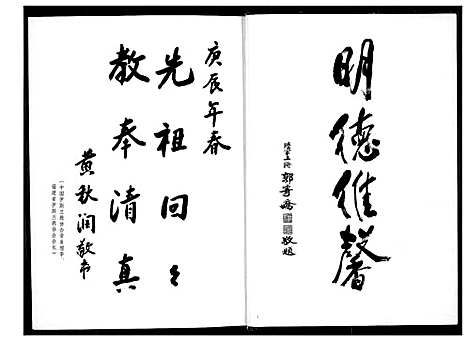 明德維馨
陸軍上将
郭奇
敬題
庚辰年春
先祖回々
教奉清真
黄秋润敬书
(中国伊斯兰教协会常务理事、
福建省伊斯兰教协会会长)